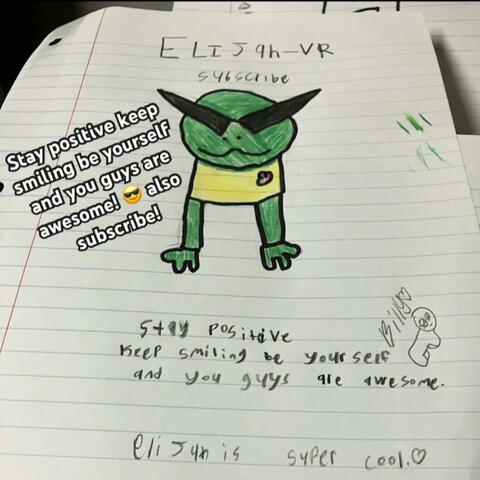 ELIJah-VR
subscribe
Stay positive keep
smiling be yourself
and you guys are
awesome! 😎 also
subscribe!
Billy♡
Stay positive
Keep smiling be yourself
and you guys are awesome.
elijah is super cool.♡